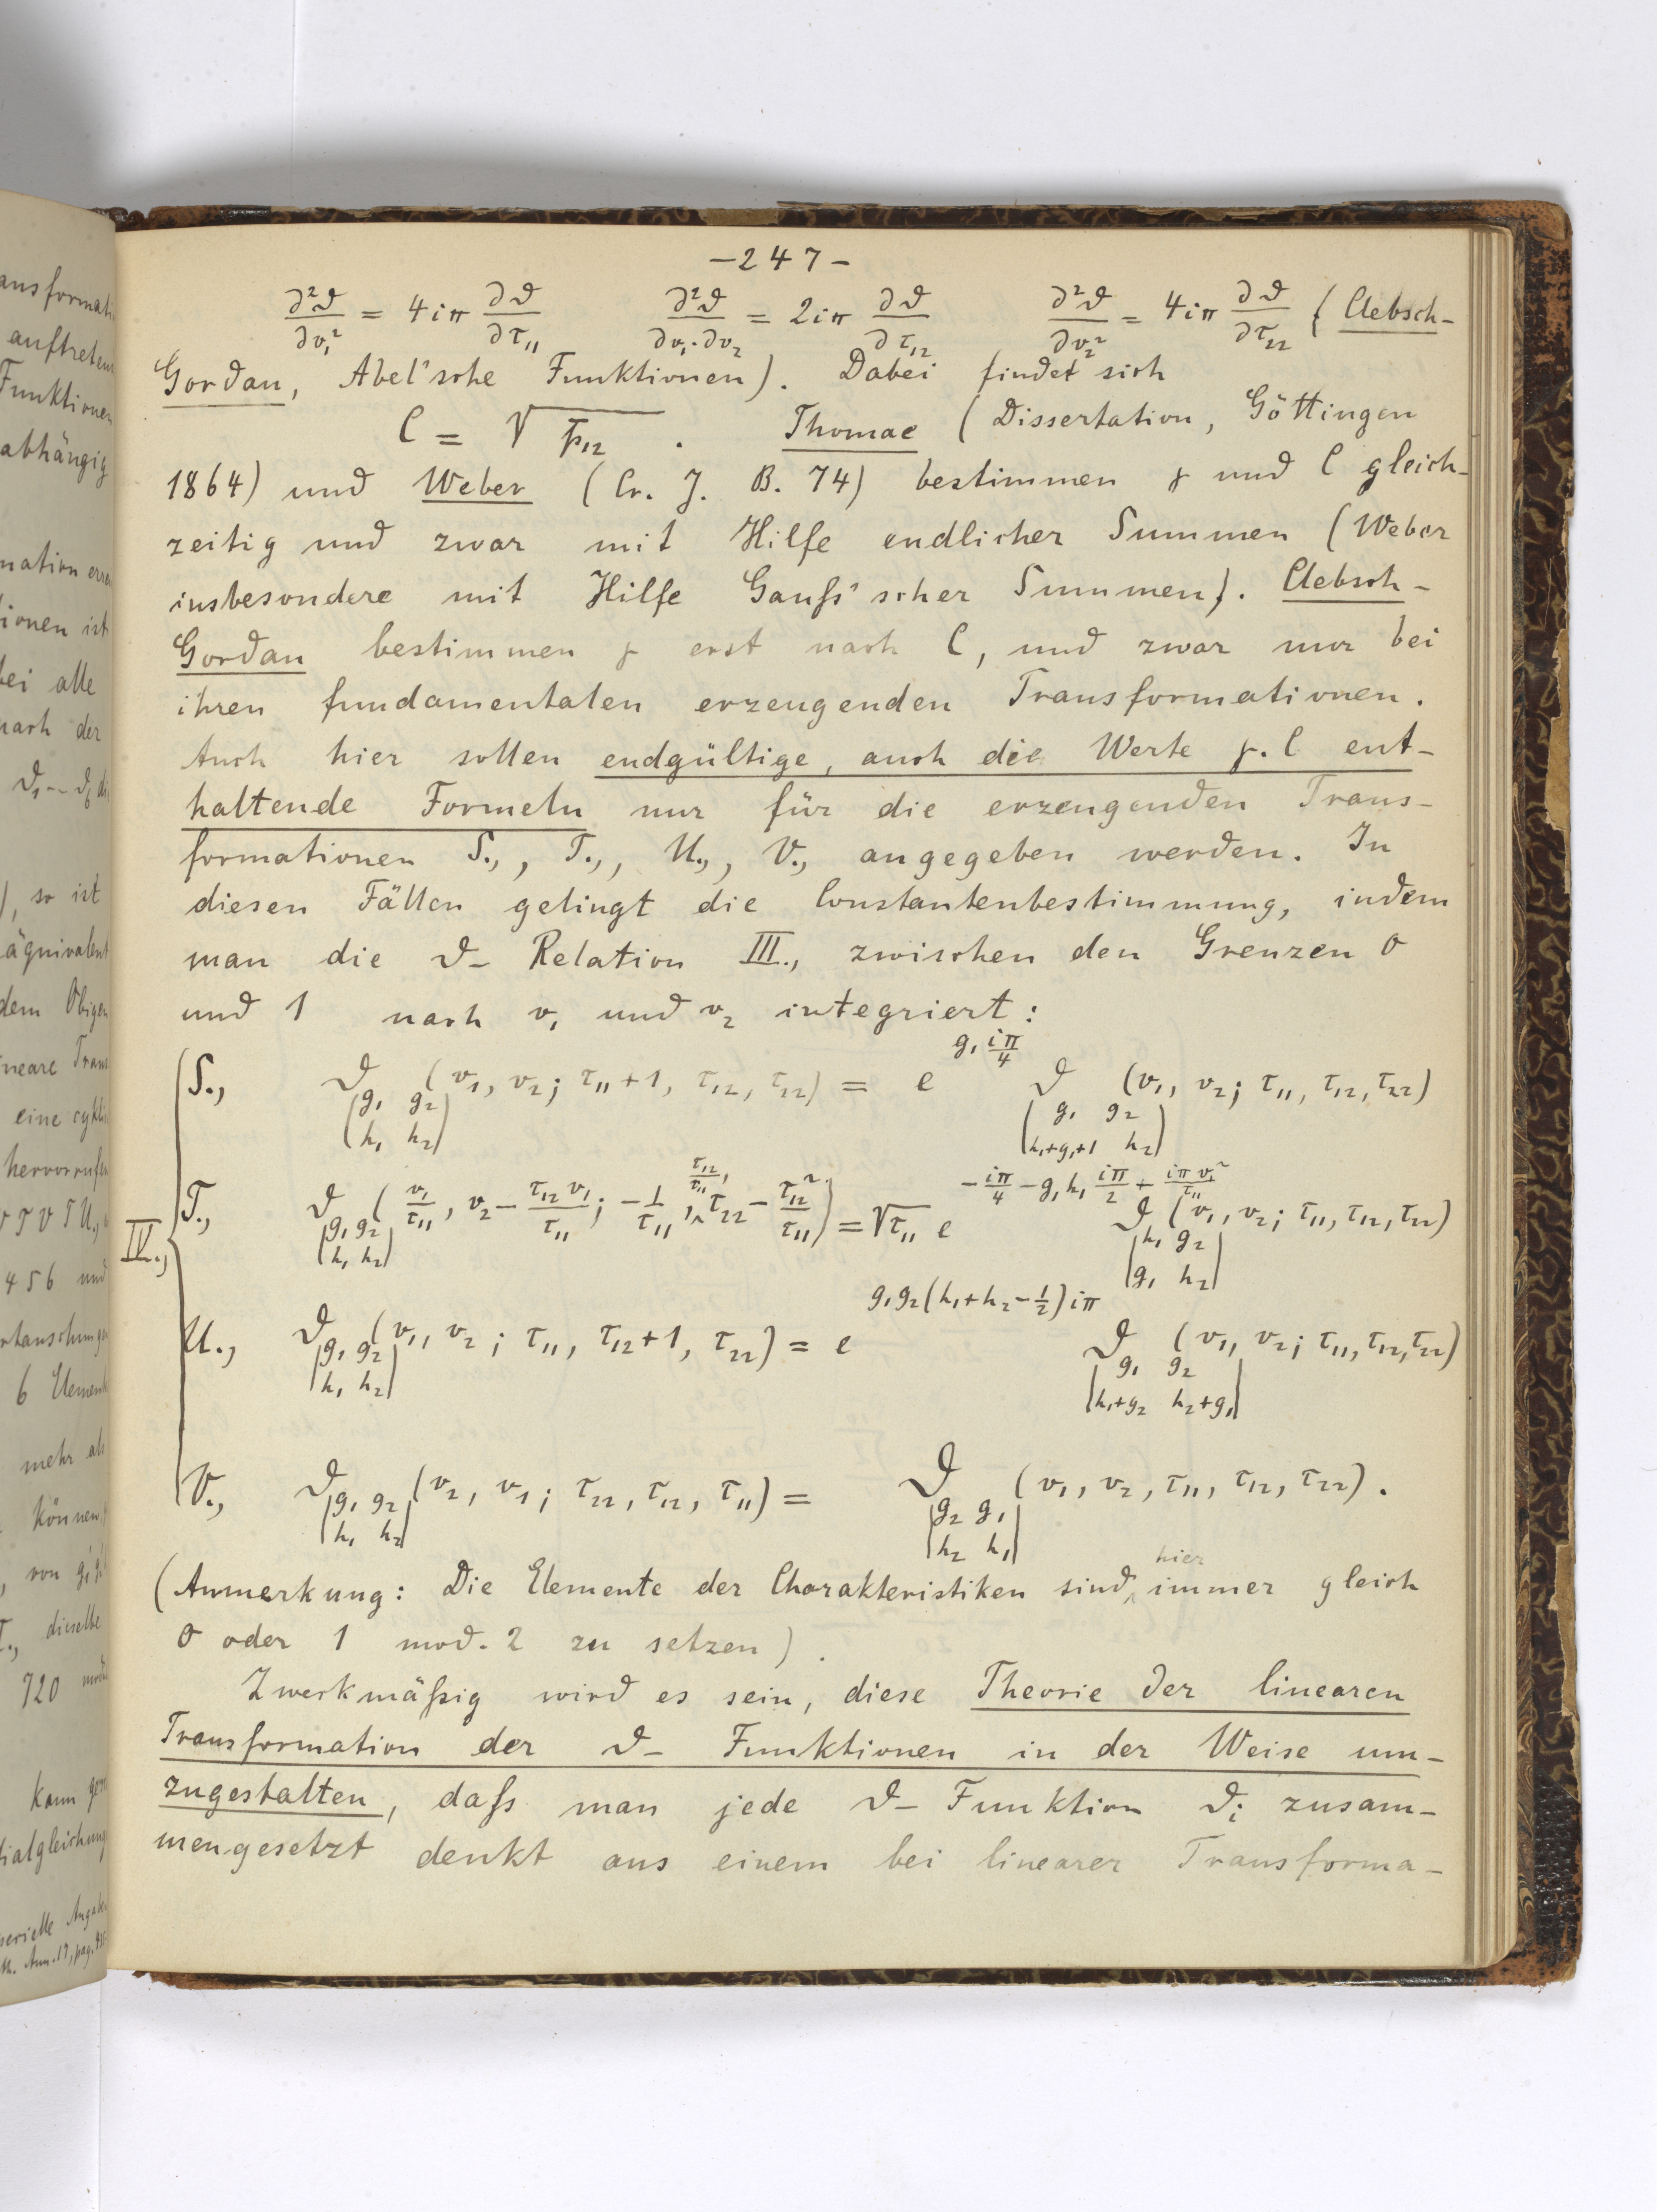 ansformati
auftreten
Funktionen
abhängig
mation
ionen ist
bei alle
nach der
), so ist
äquivalent
dem Obigen
neare Trans
eine cykli
hervorrufen
456 und
rtauschungen
6 Elemen
mehr als
können
von
dieselbe
720
kann
tialgleichung
Angabe
Ann. 17, pag.
-247-
∂²ϑ/∂v₁² = 4iπ ∂ϑ/∂τ₁₁ ∂²ϑ/∂v₁·∂v₂ = 2iπ ∂ϑ/∂τ₁₂ ∂²ϑ/∂v₂² = 4iπ ∂ϑ/∂τ₂₂ (Clebsch-
Gordan, Abel'sche Funktionen). Dabei findet sich
C = √p₁₂ . Thomae (Dissertation, Göttingen
1864) und Weber (Cr. J. B. 74) bestimmen γ und C gleich-
zeitig und zwar mit Hilfe endlicher Summen (Weber
insbesondere mit Hilfe Gauß'scher Summen). Clebsch-
Gordan bestimmen γ erst nach C, und zwar nur bei
ihren fundamentalen erzeugenden Transformationen.
Auch hier sollen endgültige, auch die Werte γ. C ent-
haltende Formeln nur für die erzeugenden Trans-
formationen S., T., U., V., angegeben werden. In
diesen Fällen gelingt die Constantenbestimmung, indem
man die ϑ- Relation III., zwischen den Grenzen 0
und 1 nach v₁ und v₂ integriert:
IV.,
S., ϑ|g₁ g₂ / h₁ h₂| (v₁, v₂; τ₁₁+1, τ₁₂, τ₂₂) = e^(g₁ iπ/4) ϑ|g₁ g₂ / h₁+g₁+1 h₂| (v₁, v₂; τ₁₁, τ₁₂, τ₂₂)
T., ϑ|g₁ g₂ / h₁ h₂| (v₁/τ₁₁, v₂ - τ₁₂v₁/τ₁₁; -1/τ₁₁, τ₁₂/τ₁₁, τ₂₂ - τ₁₂²/τ₁₁) = √τ₁₁ e^(-iπ/4 - g₁h₁ iπ/2 + iπv₁²/τ₁₁) ϑ|h₁ g₂ / g₁ h₂| (v₁, v₂; τ₁₁, τ₁₂, τ₂₂)
U., ϑ|g₁ g₂ / h₁ h₂| (v₁, v₂; τ₁₁, τ₁₂+1, τ₂₂) = e^(g₁g₂(h₁+h₂-1/2)iπ) ϑ|g₁ g₂ / h₁+g₂ h₂+g₁| (v₁, v₂; τ₁₁, τ₁₂, τ₂₂)
V., ϑ|g₁ g₂ / h₁ h₂| (v₂, v₁; τ₂₂, τ₁₂, τ₁₁) = ϑ|g₂ g₁ / h₂ h₁| (v₁, v₂, τ₁₁, τ₁₂, τ₂₂).
(Anmerkung: Die Elemente der Charakteristiken sind hier immer gleich
0 oder 1 mod. 2 zu setzen).
Zweckmäßig wird es sein, diese Theorie der linearen
Transformation der ϑ- Funktionen in der Weise um-
zugestalten, daß man jede ϑ- Funktion ϑᵢ zusam-
mengesetzt denkt aus einem bei linearer Transforma-